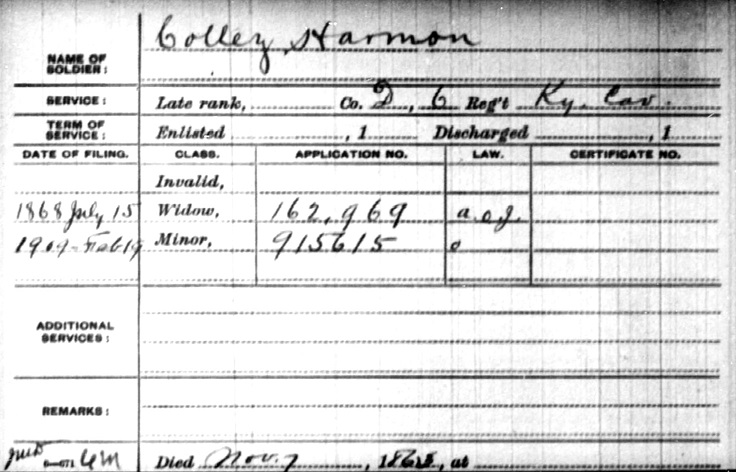 NAME OF SOLDIER: Colley, Harmon
SERVICE: Late rank, Co. D, 6 Reg't Ky. Cav.
TERM OF SERVICE: Enlisted , 1 Discharged , 1
DATE OF FILING. CLASS. APPLICATION NO. LAW. CERTIFICATE NO.
Invalid,
1868 July 15 Widow, 162,969
1909 Feb 19 Minor, 915615
ADDITIONAL SERVICES:
REMARKS:
Died Nov. 7, at